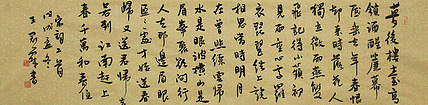 夢後樓臺高
鎖酒醒簾幕
低垂去年春恨
却來時落花人
獨立微雨燕雙
飛記得小蘋初
見兩重心字羅
衣琵琶弦上說
相思當時明月
在曾照彩雲歸
水是眼波橫山是
眉峰聚欲問行
人去那邊眉眼
盈盈處才始送春
歸又送君歸去
若到江南趕上
春千萬和春住
宋詞二首
戊戌立冬
王 書